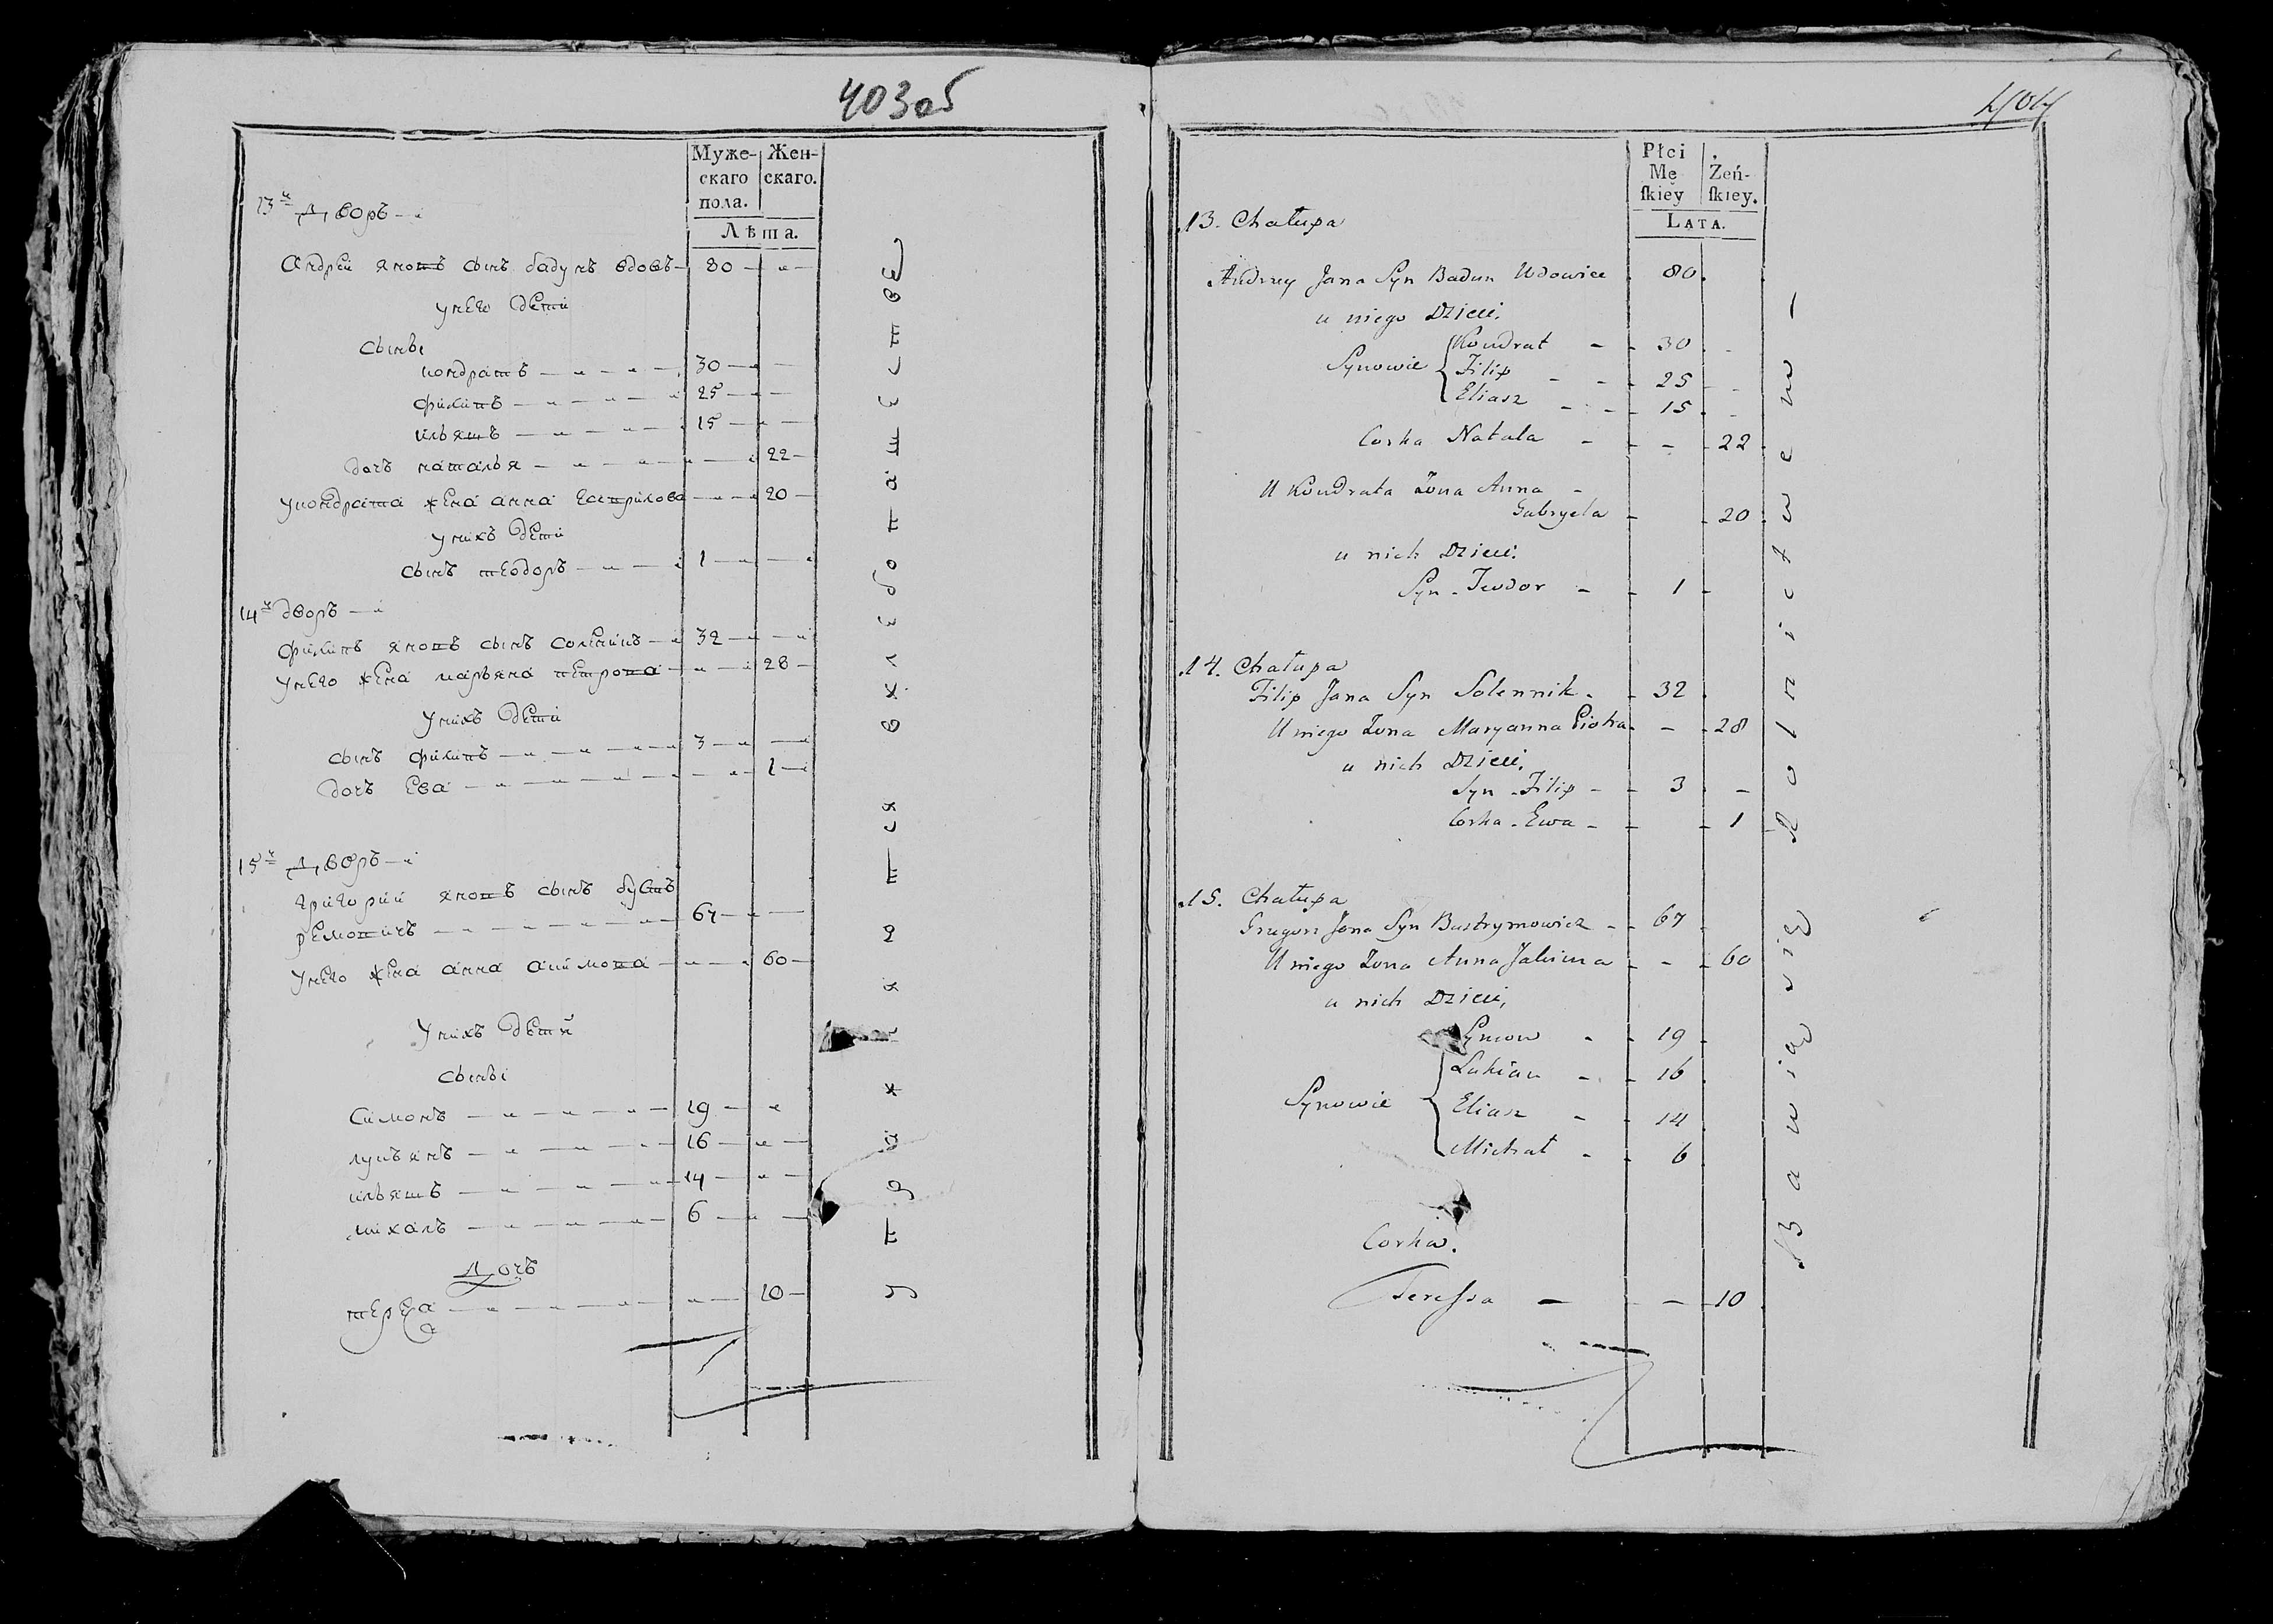 403об
Муже-
скаго
пола.
Жен-
скаго.
Лѣта.
13й дворъ
Андрей яновъ сынъ бадунъ вдовъ 80
унего дети
сыны
кондратъ 30
филипъ 25
ильяшъ 15
дочь наталья 22
укондрата жена анна гаврилова 20
унихъ дети
сынъ теодоръ 1
14й дворъ
филипъ яновъ сынъ соленикъ 32
унего жена марьяна петрова 28
унихъ дети
сынъ филипъ 3
дочь ева 1
15й дворъ
григорий яновъ сынъ буст
ремовичъ 67
унего жена анна акимова 60
унихъ дети
сыны
Симонъ 19
лукьянъ 16
ильяшъ 14
михалъ 6
дочь
тереса 10
404
Płci
Mę
ſkiey
Żeń-
ſkiey.
Lata.
13. Chałupa
Andrzey Jana Syn Badun Wdowiec 80
u niego Dzieci
Synowie
Kondrat 30
Filip 25
Eliasz 15
Corka Natala 22
U Kondrata Zona Anna
Gabryela 20
u nich Dzieci
Syn Teodor 1
14. Chałupa
Filip Jana Syn Solennik 32
U niego Zona Maryanna Piotra 28
u nich Dzieci
Syn Filip 3
Corka Ewa 1
15. Chałupa
Grzegorz Jana Syn Bustrymowicz 67
U niego Zona Anna Jakima 60
u nich Dzieci
Synowie
Symon 19
Łukian 16
Eliasz 14
Michał 6
Corka
Teressa 10
Bawią się Rolnictwem